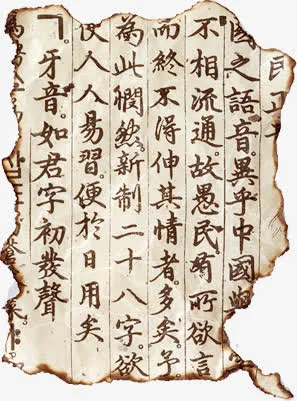 民
國之語音。異乎中國
不相流通。故愚民。有所欲言
而終不得伸其情者。多矣。予
為此憫然。新制二十八字。欲
使人人易習。便於日用矣
ㄱ。牙音。如君字初發聲